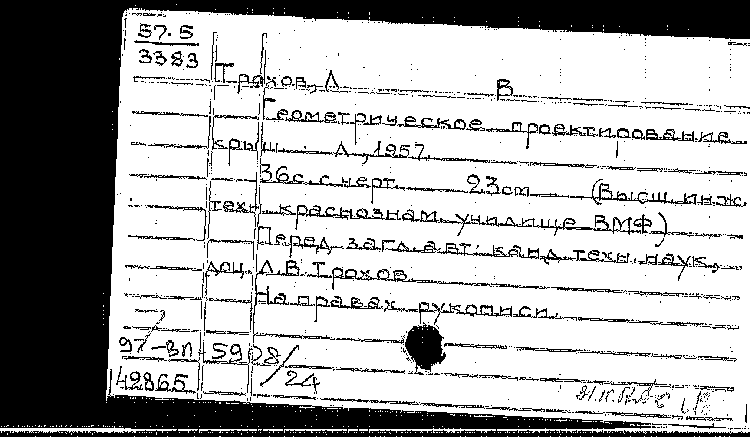 57.5
3383
Трохов, Л В
Геометрическое проектирование
крыш. Л., 1957.
36с. с черт. 23см (Высш. инж.
техн. краснознам. училище ВМФ)
Перед загл. авт: канд. техн. наук,
доц. Л.В. Трохов
На правах рукописи.
97-3Л 5908/24
42865